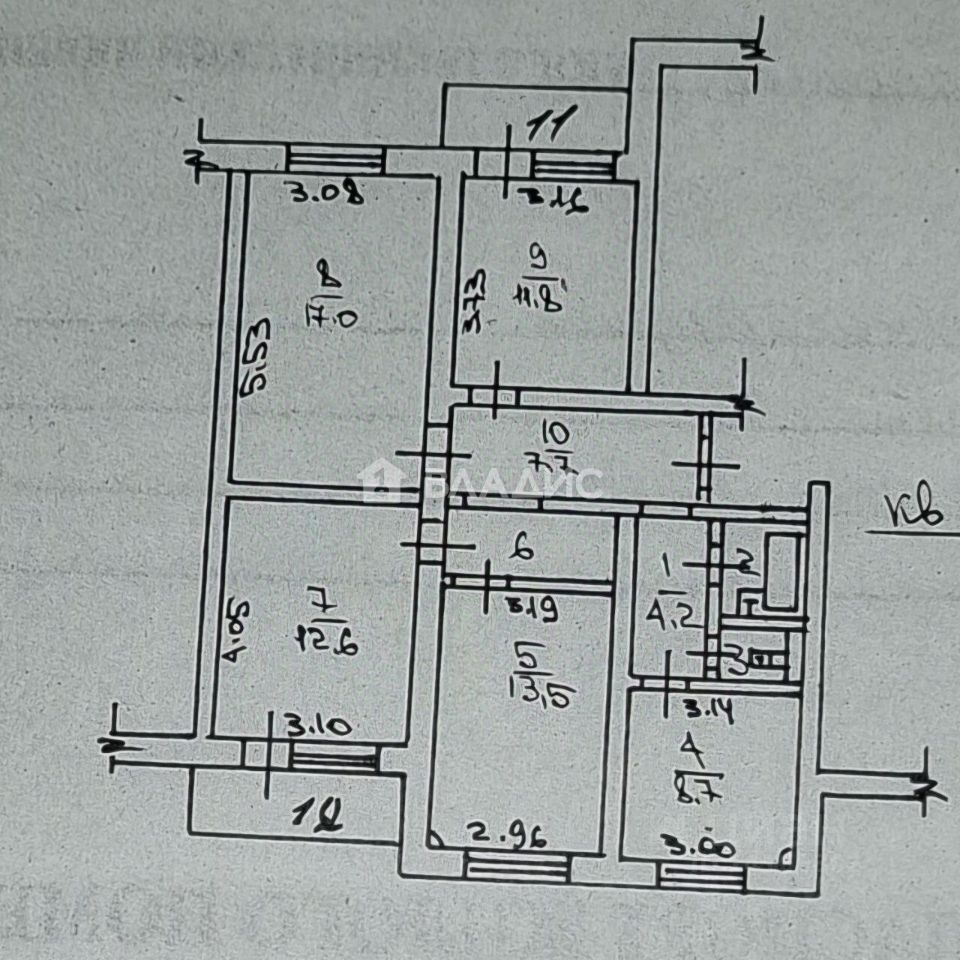 11
3.08
3.16
8
17.0
9
11.8
3.73
5.53
10
7.7
БЛАДИС
кв
6
1
4.2
2
3
3.19
7
12.6
4.05
5
13,5
3.14
4
8.7
3.10
12
2.96
3.00